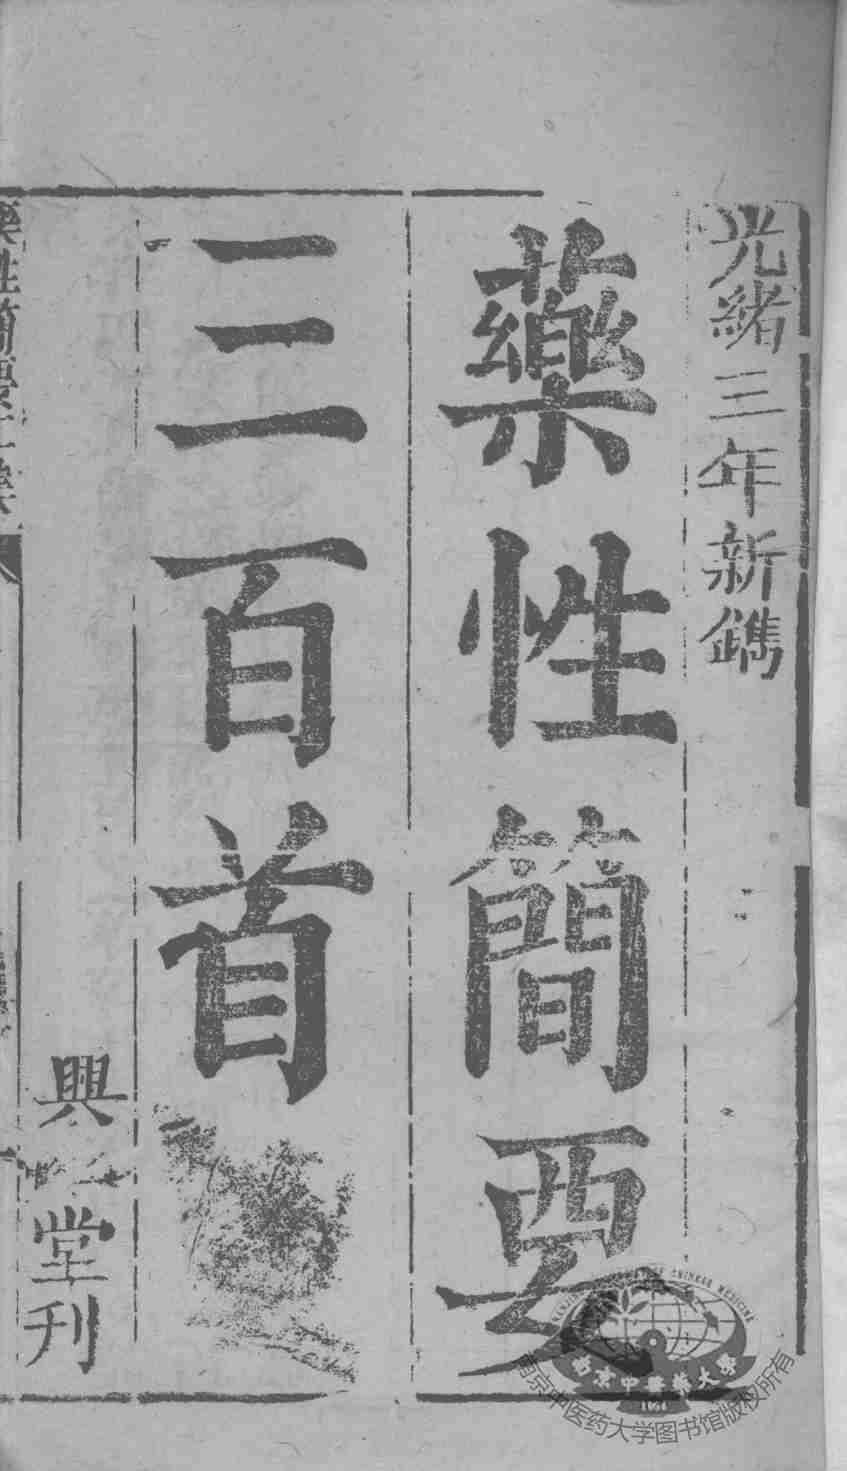 光緒三年新鐫
藥性簡要
三百首
興堂刊
藥性簡要三百
南京中醫藥大學
1954
南京中医药大学图书馆版权所有